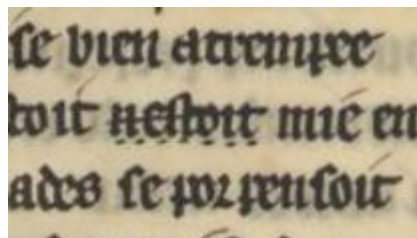 se bien atrempee
toit nestoit mie en
ades se porpensoit